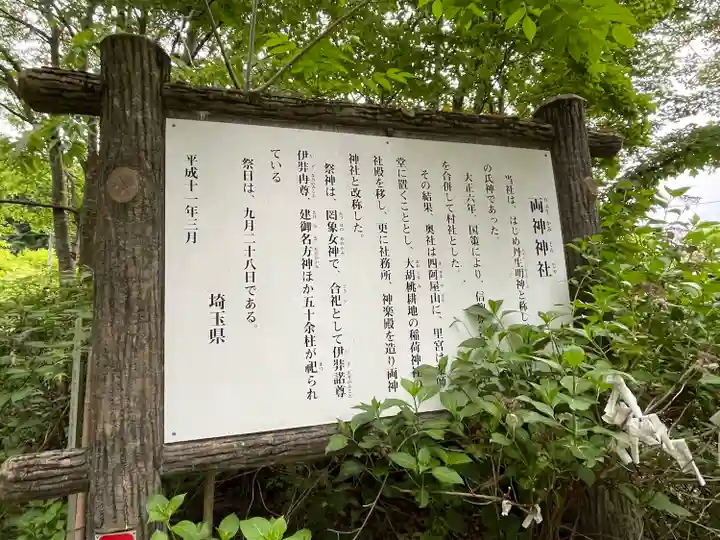 両神神社
当社は、はじめ丹生明神と称し
の氏神であった
大正六年、国策により、信
を合併して村社とした。
その結果、奥社は四阿屋山に、里宮は
堂に置くこととし、大胡桃耕地の稲荷神社
社殿を移し、更に社務所、神楽殿を造り両神
神社と改称した。
祭神は、罔象女神で、合祀として伊弉諾尊
伊弉冉尊、建御名方神ほか五十余柱が祀られ
ている
祭日は、九月二十八日である。
平成十一年三月
埼玉県